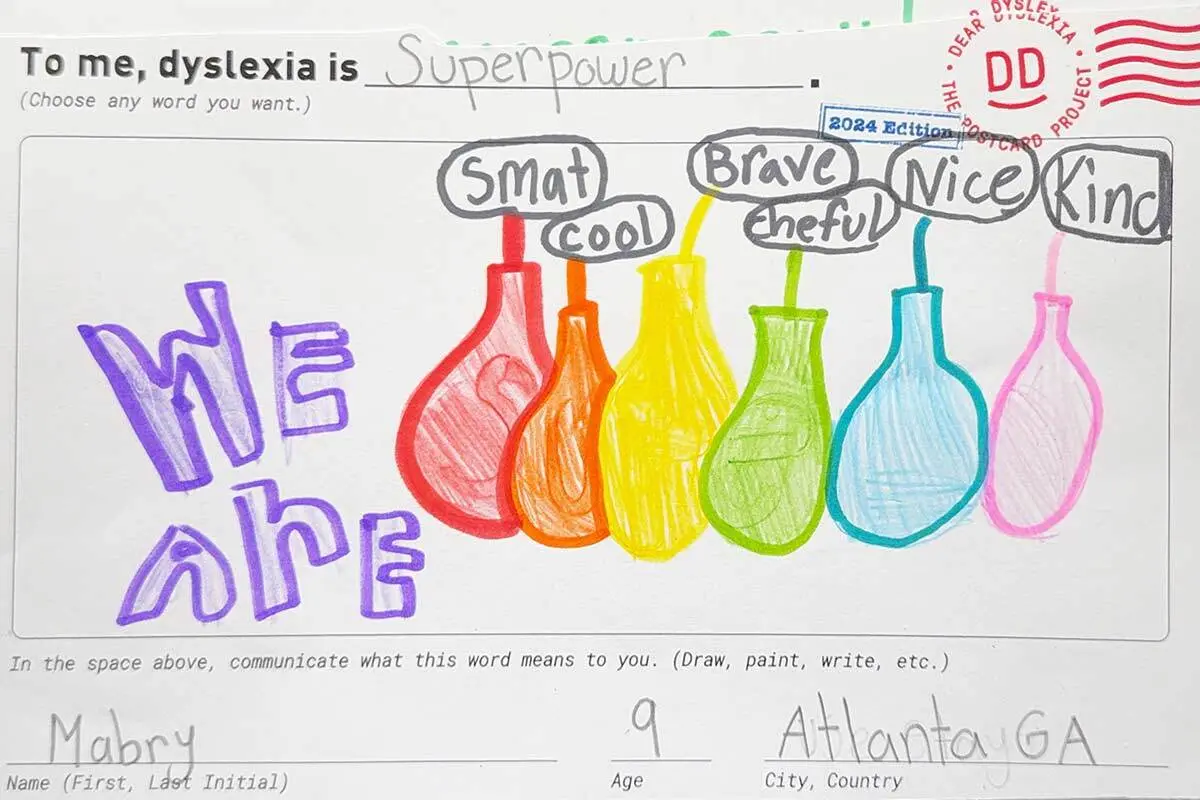 To me, dyslexia is Superpower.
(Choose any word you want.)
DEAR DYSLEXIA
THE POSTCARD PROJECT
DD
2024 Edition
Smat
Brave
Nice
Kind
cool
cheful
WE
ARE
In the space above, communicate what this word means to you. (Draw, paint, write, etc.)
Mabry
9
Atlanta GA
Name (First, Last Initial)
Age
City, Country